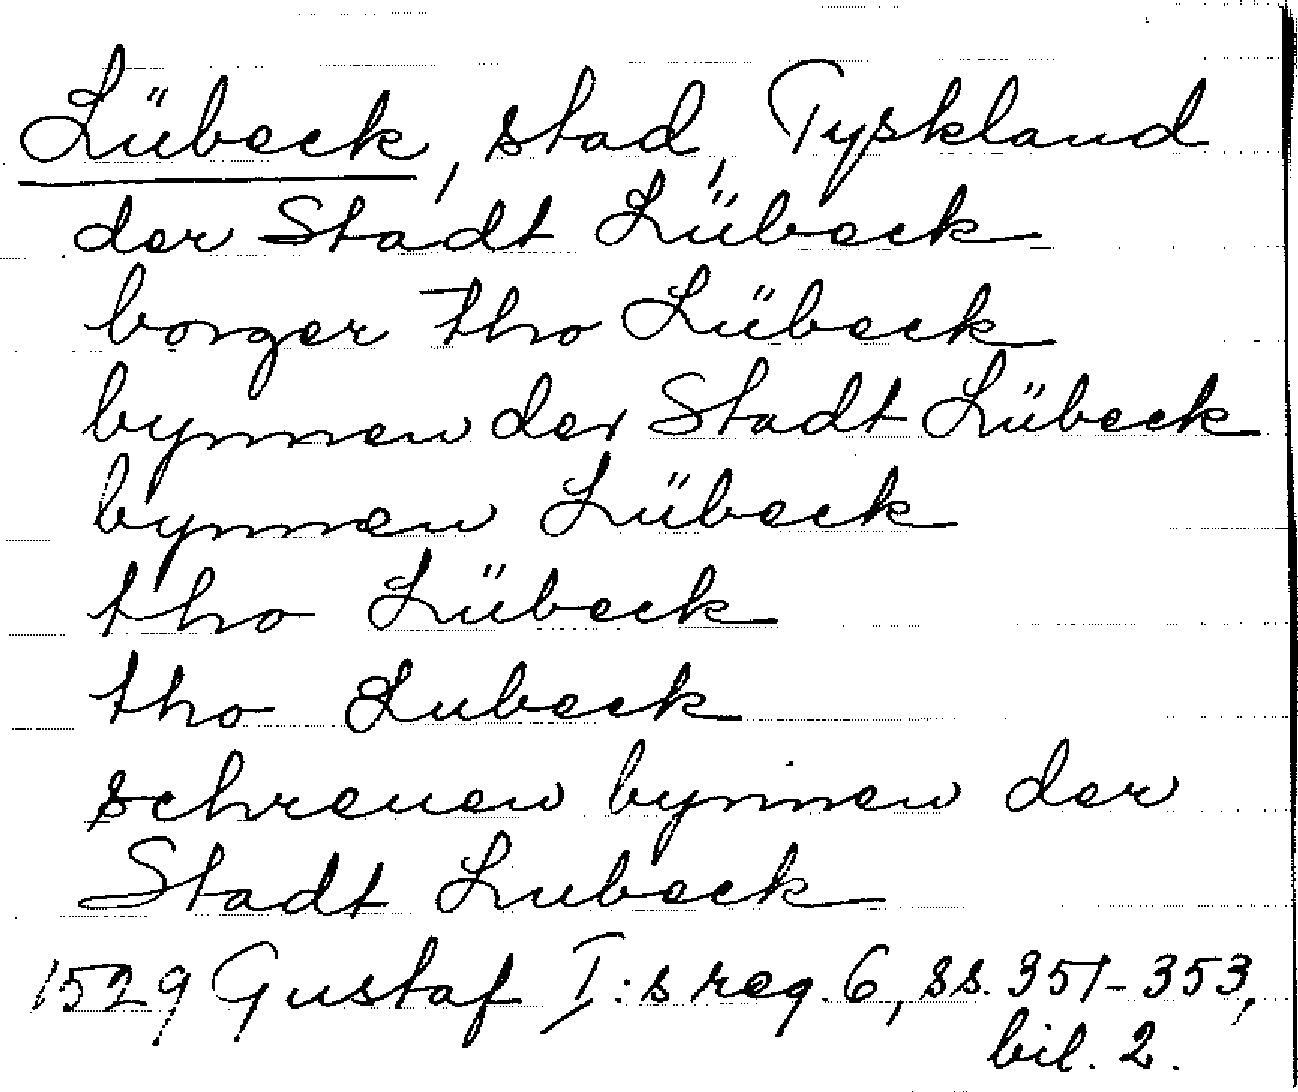 Lübeck, stad, Tyskland
der Stadt Lübeck
borger tho Lübeck
bynnen der Stadt Lübeck
bynnen Lübeck
tho Lübeck
tho Lubeck
schreuen bynnen der
Stadt Lubeck
1529 Gustaf I:s reg. 6, ss. 351-353,
bil. 2.